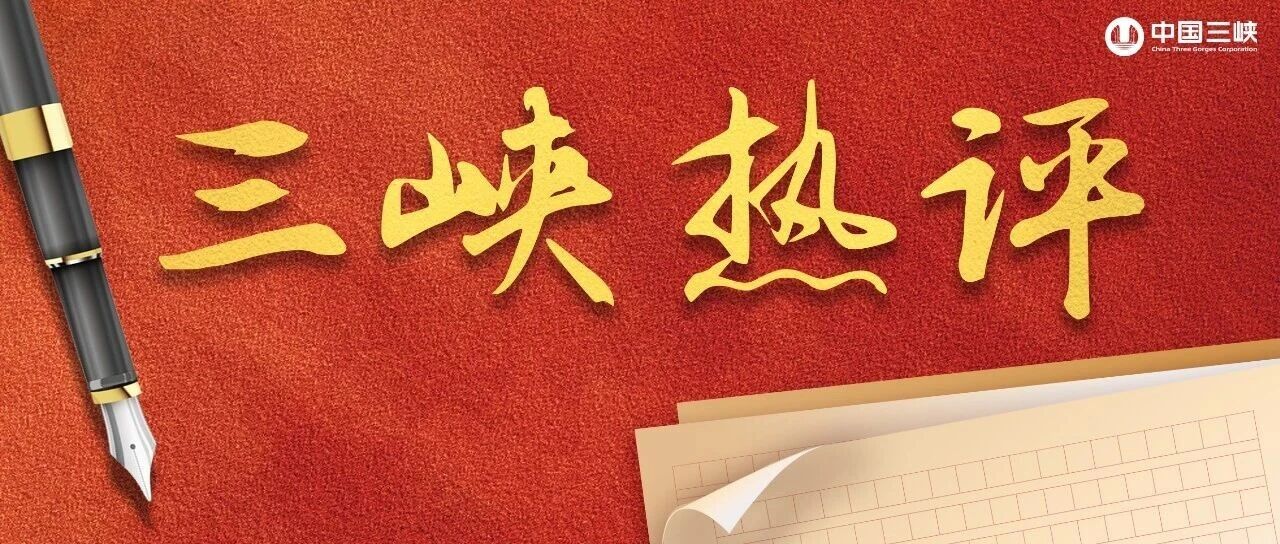 中国三峡
China Three Gorges Corporation
三峡热评